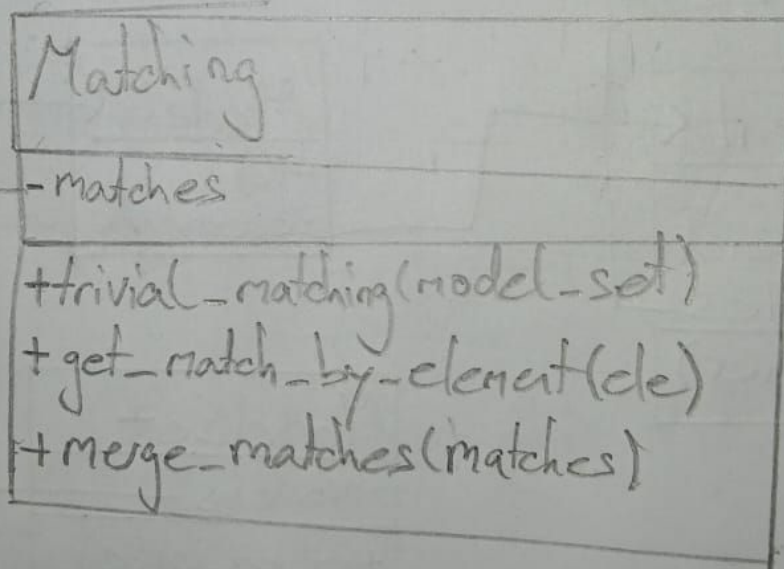 Matching
-matches
+trivial_matching(model_set)
+get_match_by_element(ele)
+merge_matches(matches)